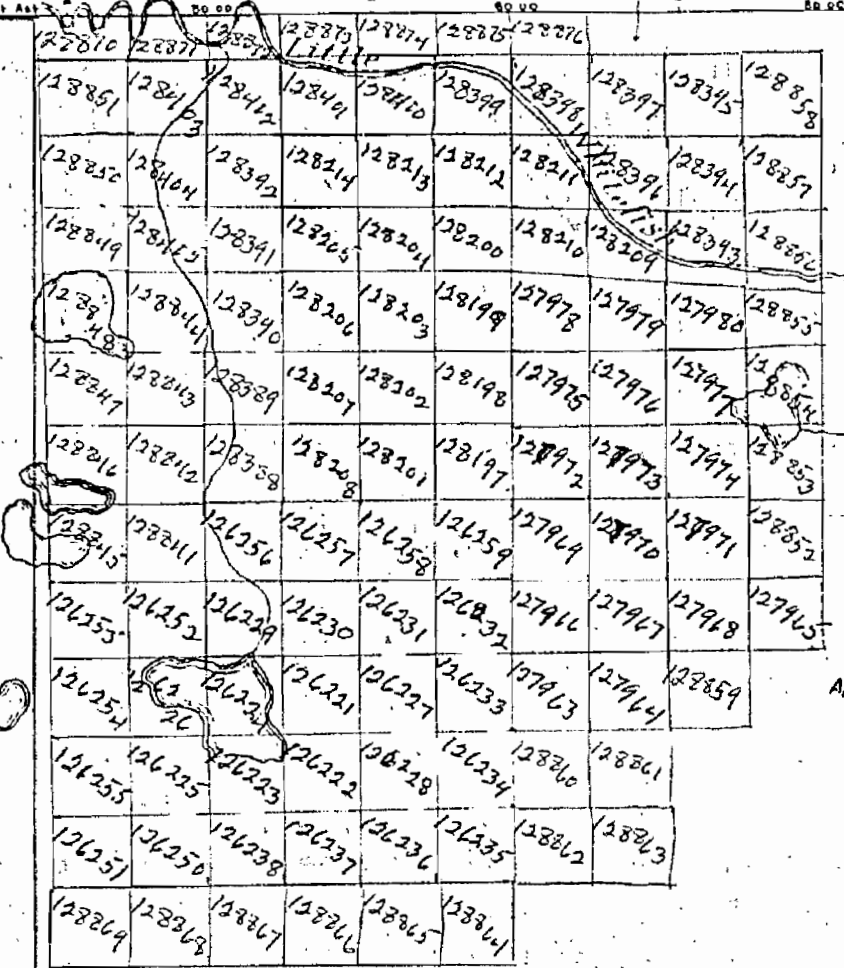 80 00 80 00 80 00
128870 128871 128872 128873 128874 128875 128876
Little
128851 128403 128402 128401 128400 128399 128398 128397 128395 128858
128850 128404 128392 128214 128213 128212 128211 128396 128394 128857
Whitefish
128849 128391 128205 128204 128200 128210 128209 128393 128856
128848 128844 128390 128206 128203 128199 127978 127979 127980 128855
128847 128843 128389 128207 128202 128198 127975 127976 127977 128854
128846 128842 128388 128208 128201 128197 127972 127973 127974 128853
128845 128841 126256 126257 126258 126259 127969 127970 127971 128852
126253 126252 126229 126230 126231 126232 127966 127967 127968 127965
126254 126226 126221 126227 126233 127963 127964 128859
126255 126225 126223 126222 126228 126234 128860 128861
126251 126250 126238 126237 126236 126235 128862 128863
128869 128868 128867 128866 128865 128864